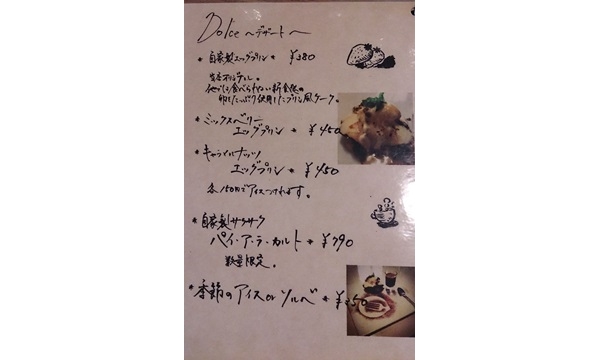 Dolce ~デザート~
* 自家製エッグプリン * ¥380
当店オリジナル。
他では食べられない新食感の
卵たっぷり使用したプリン風ケーキ。
* ミックスベリー
エッグプリン * ¥450
* キャラメルナッツ
エッグプリン * ¥450
各150円でアイスつけれます。
* 自家製サクサク
パイ・ア・ラ・カルト * ¥390
数量限定。
* 季節のアイス or ソルベ * ¥350